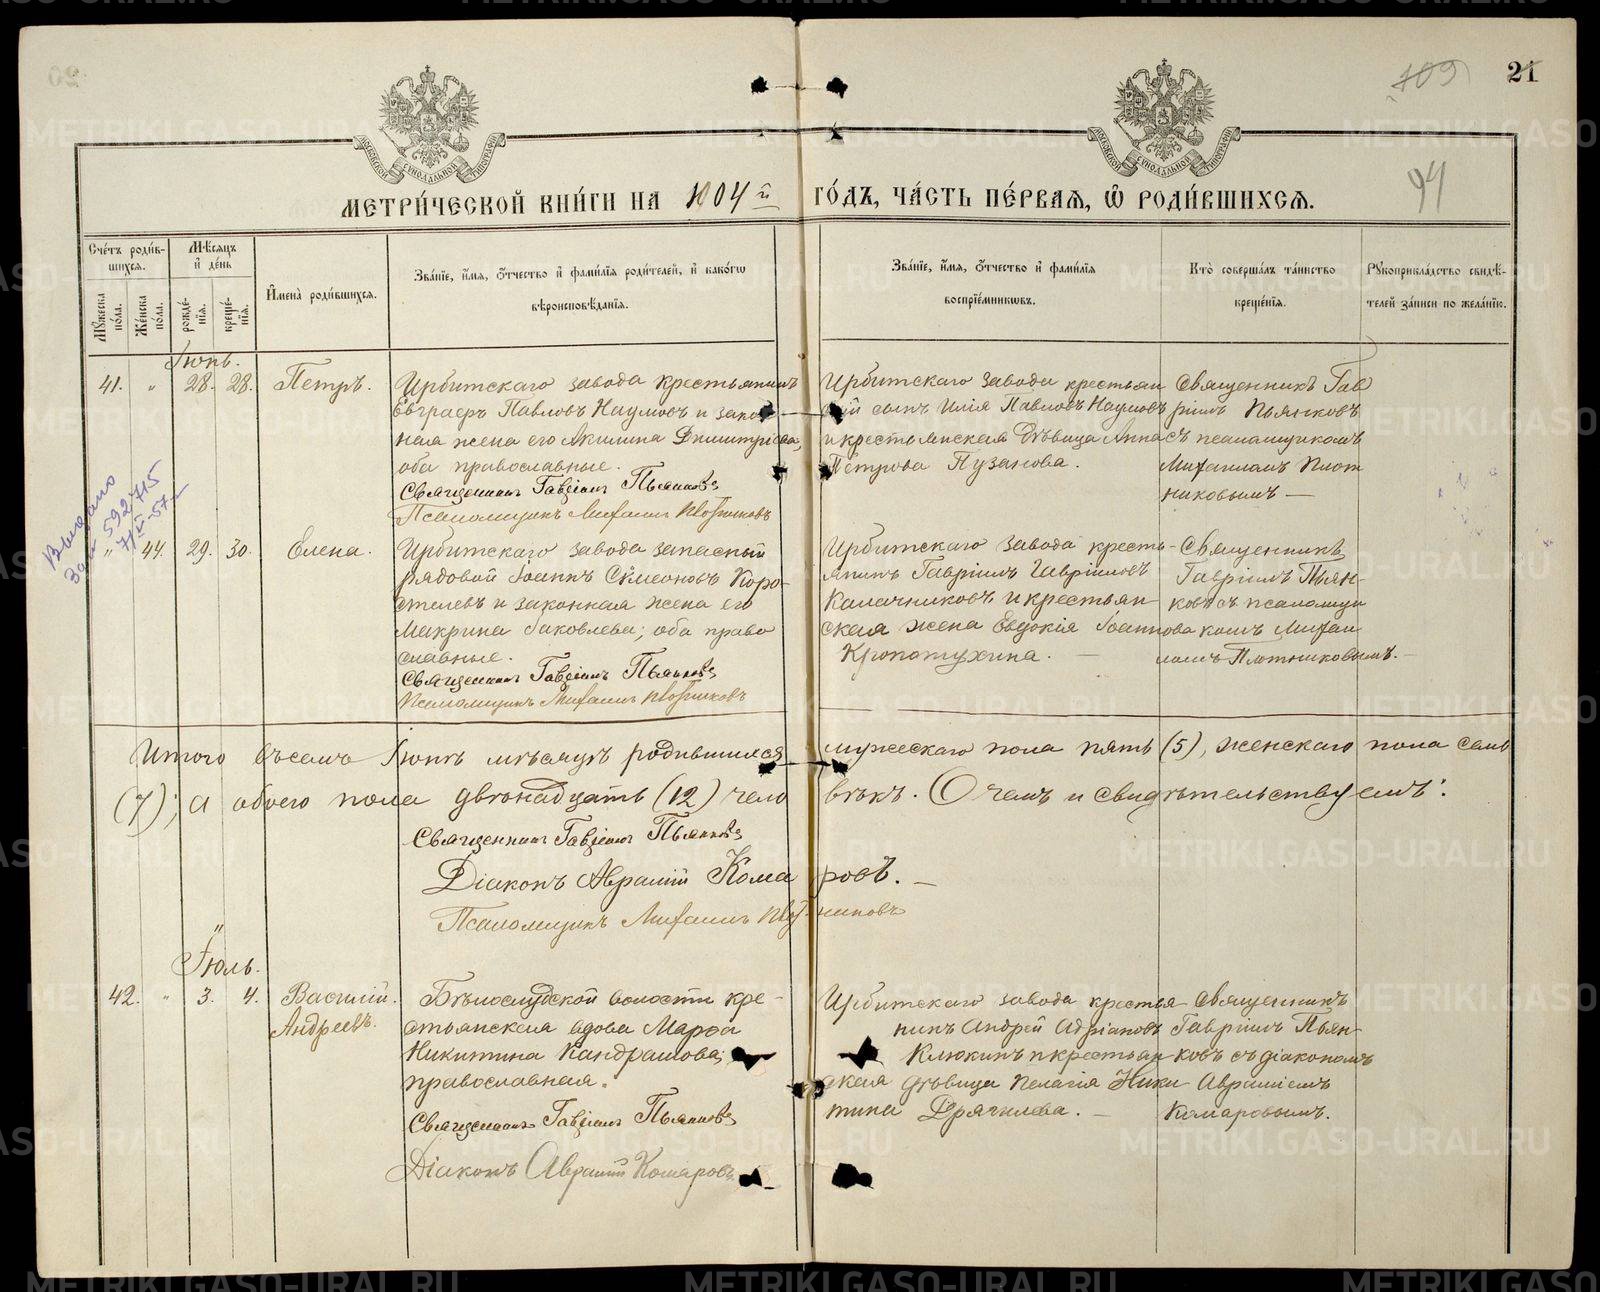 109
21
94
МЕТРИ́ЧЕСКОЙ КНИ́ГИ НА 1904 й ГО́ДЪ, ЧА́СТЬ ПЕ́РВАЯ, Ѽ РОДИ́ВШИХСЯ.
Сче́тъ роди́в-шихся.
Мѣ́сяцъ и҆ де́нь
Мꙋ́жеска по́ла.
Же́нска по́ла.
рожде́-нїя.
креще́-нїя.
И҆мена̀ роди́вшихся.
Зва́нїе, и҆́мя, ѻ҆́тчество и҆ фами́лїя роди́телей, и҆ како́гѡ вѣроисповѣ́данїя.
Зва́нїе, и҆́мя, ѻ҆́тчество и҆ фами́лїя воспрїе́мникѡвъ.
Кто̀ соверша́лъ та́инство креще́нїя.
Рꙋкоприкла́дство свидѣ́-телей за́писи по жела́нїю.
Іюнь.
41. „ 28. 28. Петръ.
Ирбитскаго завода крестьянинъ
Евграфъ Павловъ Наумовъ и закон
ная жена его Акилина Димитріева,
оба православные.
Священникъ Гавріилъ Пьянковъ
Псаломщикъ Михаилъ Плотниковъ
Ирбитскаго завода крестьян
скій сынъ Илія Павловъ Наумовъ
и крестьянская дѣвица Анна
Петрова Пузанова.
Священникъ Гав
ріилъ Пьянковъ
съ псаломщикомъ
Михаиломъ Плот
никовымъ —
Выдано
592715
„ 44. 29. 30. Елена.
Ирбитскаго завода запасный
рядовой Іоаннъ Сѵмеоновъ Коро-
стелевъ и законная жена его
Макрина Іаковлева; оба право
славные.
Священникъ Гавріилъ Пьянковъ
Псаломщикъ Михаилъ Плотниковъ
Ирбитскаго завода кресть-
янинъ Гавріилъ Гавріиловъ
Калачниковъ и крестьян
ская жена Евдокія Іоаннова
Кропотухина. —
Священникъ
Гавріилъ Пьян-
ковъ съ псаломщи
комъ Михаи
ломъ Плотниковымъ. —
Итого въ семъ Іюнѣ мѣсяцѣ родившихся мужескаго пола пять (5), женскаго пола семь
(7); а обоего пола двѣнадцать (12) чело вѣкъ. О чемъ и свидѣтельствуемъ:
Священникъ Гавріилъ Пьянковъ
Діаконъ Авраамій Комаровъ. —
Псаломщикъ Михаилъ Плотниковъ
Іюль.
42. „ 3. 4. Василій
Андреевъ.
Бѣлослудской волости кре-
стьянская вдова Марфа
Никитина Кандрашова;
православная.
Священникъ Гавріилъ Пьянковъ
Діаконъ Авраамій Комаровъ
Ирбитскаго завода крестья
нинъ Андрей Адріановъ
Клюкинъ и крестьян
ская дѣвица Пелагія Ники
тина Дрягилева. —
Священникъ
Гавріилъ Пьян-
ковъ съ діакономъ
Авраміемъ
Комаровымъ.
METRIKI.GASO-URAL.RU